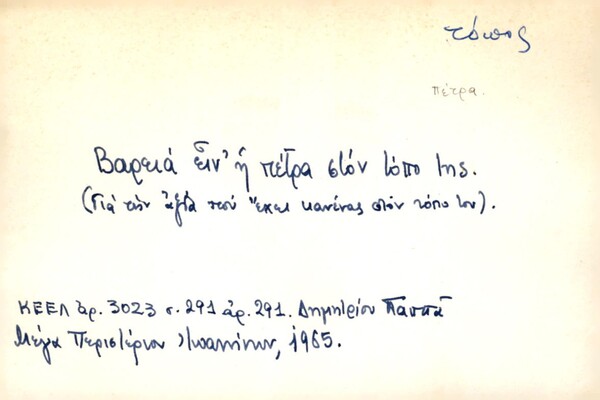 τόπος
πέτρα.
Βαρειά εἶν' ἡ πέτρα στόν τόπο της.
(Γιά τήν ἀξία πού ἔχει κανένας στόν τόπο του).
ΚΕΕΛ ἀρ. 3023 σ. 291 ἀρ. 291. Δημητρίου Παππᾶ
Μέγα Περιστέριον Ἰωαννίνων, 1965.